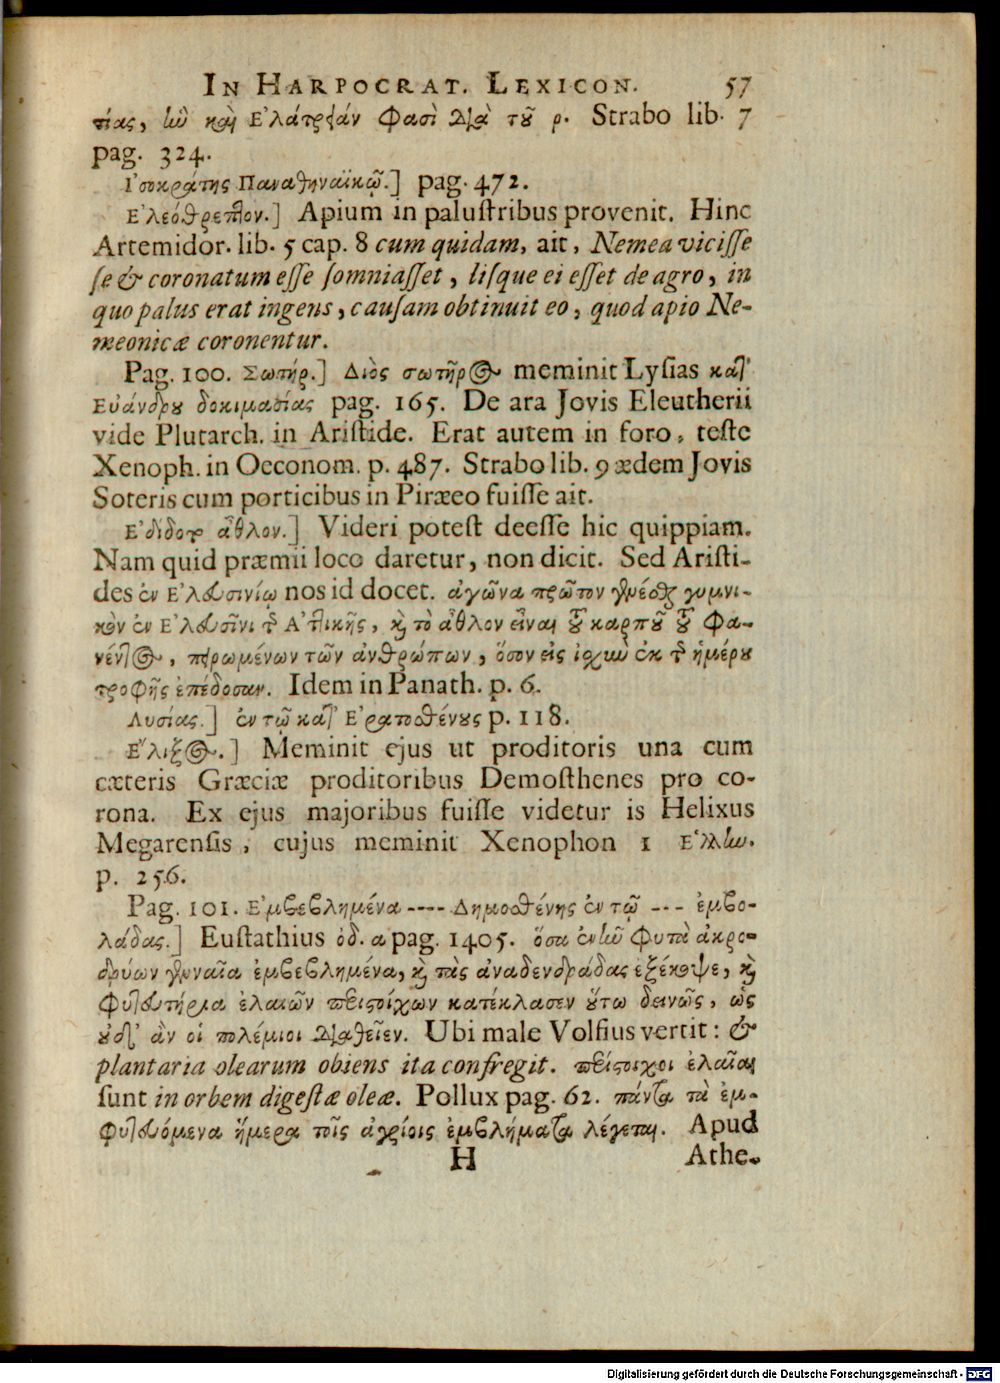 IN HARPOCRAT. LEXICON. 57
τίας, ἣν καὶ Ἐλάτρειάν φασὶ διὰ τοῦ ρ. Strabo lib. 7
pag. 324.
Ἰσοκράτης Παναθηναϊκῷ.] pag. 472.
Ἐλεόθρεπτον.] Apium in paluſtribus provenit. Hinc
Artemidor. lib. 5 cap. 8 cum quidam, ait, Nemea viciſſe
ſe & coronatum eſſe ſomniaſſet, liſque ei eſſet de agro, in
quo palus erat ingens, cauſam obtinuit eo, quod apio Ne-
meonicæ coronentur.
Pag. 100. Σωτήρ.] Διὸς σωτῆρος meminit Lyſias κατ'
Εὐάνδρου δοκιμασίας pag. 165. De ara Jovis Eleutherii
vide Plutarch. in Ariſtide. Erat autem in foro, teſte
Xenoph. in Oeconom. p. 487. Strabo lib. 9 ædem Jovis
Soteris cum porticibus in Piræeo fuiſſe ait.
Ἐδίδοτο ἆθλον.] Videri poteſt deeſſe hic quippiam.
Nam quid præmii loco daretur, non dicit. Sed Ariſti-
des ἐν Ἐλευσινίῳ nos id docet. ἀγῶνα πρῶτον γενέσθαι γυμνι-
κὸν ἐν Ἐλευσῖνι τῆς Ἀττικῆς, καὶ τὸ ἆθλον εἶναι τοῦ καρποῦ τοῦ φα-
νέντος, πειρωμένων τῶν ἀνθρώπων, ὅσον εἰς ἰσχὺν ἐκ τῆς ἡμέρου
τροφῆς ἐπέδοσαν. Idem in Panath. p. 6.
Λυσίας.] ἐν τῷ κατ' Ἐρατοσθένους p. 118.
Ἕλιξος.] Meminit ejus ut proditoris una cum
cæteris Græciæ proditoribus Demoſthenes pro co-
rona. Ex ejus majoribus fuiſſe videtur is Helixus
Megarenſis, cujus meminit Xenophon 1 Ἑλλην.
p. 256.
Pag. 101. Ἐμβεβλημένα ---- Δημοσθένης ἐν τῷ --- ἐμβο-
λάδας.] Euſtathius ὀδ. α pag. 1405. ὅσα ἐνῆν φυτὰ ἀκρο-
δρύων γενναῖα ἐμβεβλημένα, καὶ τὰς ἀναδενδράδας ἐξέκοψε, καὶ
φυτευτήρια ἐλαιῶν περιστοίχων κατέκλασεν οὕτω δεινῶς, ὡς
οὐδ' ἂν οἱ πολέμιοι διαθεῖεν. Ubi male Volfius vertit: &
plantaria olearum obiens ita confregit. περίστοιχοι ἐλαῖαι
ſunt in orbem digeſtæ oleæ. Pollux pag. 62. πάντα τὰ ἐμ-
φυτευόμενα ἥμερα τοῖς ἀγρίοις ἐμβλήματα λέγεται. Apud
H Athe-
Digitalisierung gefördert durch die Deutsche Forschungsgemeinschaft - DFG